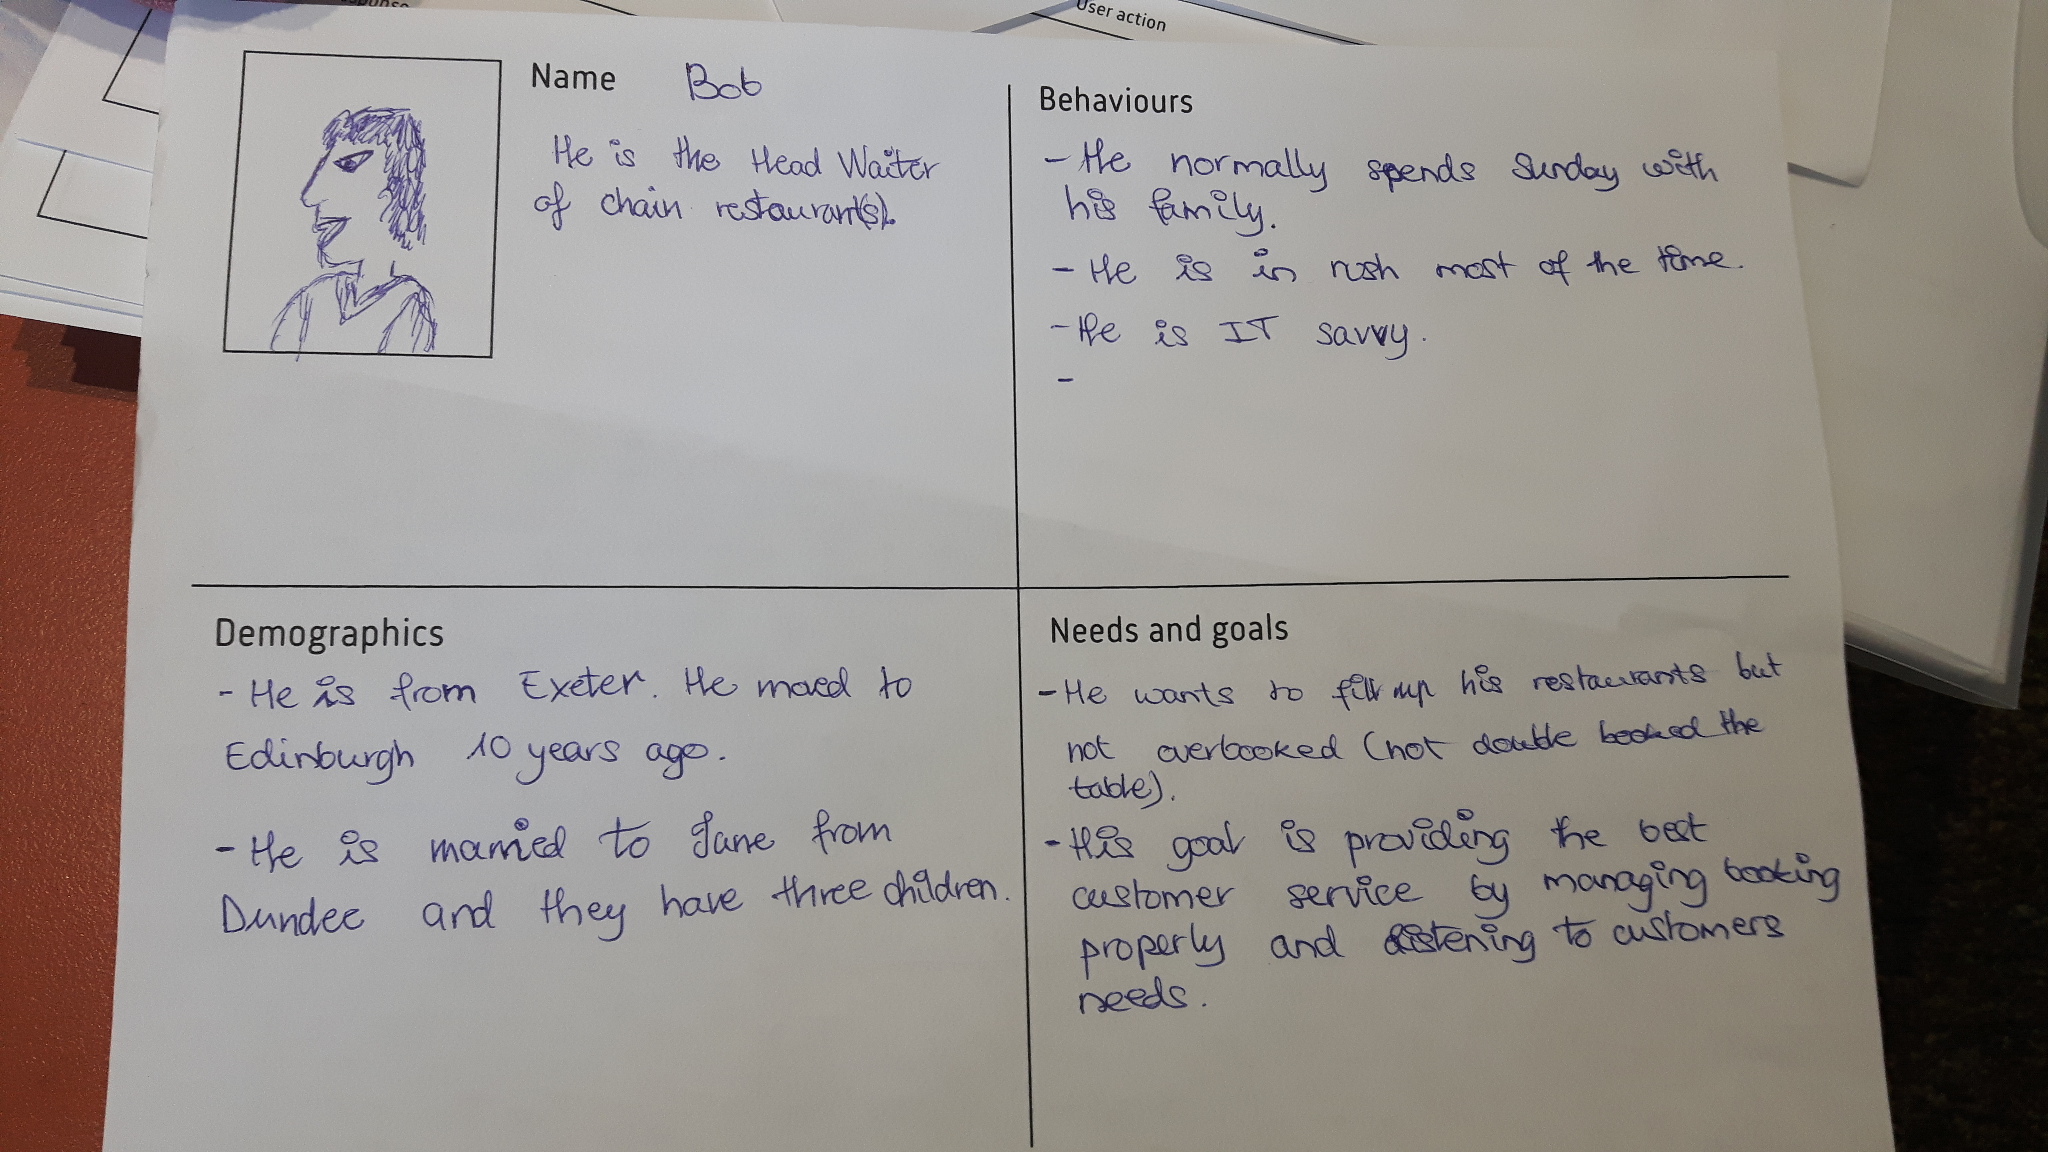 User action
Name Bob
He is the Head Waiter
of chain restaurant(s).
Behaviours
- He normally spends Sunday with
his family.
- He is in rush most of the time.
- He is IT savvy.
-
Demographics
- He is from Exeter. He moved to
Edinburgh 10 years ago.
- He is married to Jane from
Dundee and they have three children.
Needs and goals
- He wants to fill up his restaurants but
not overbooked (not double booked the
table).
- His goal is providing the best
customer service by managing booking
properly and listening to customers
needs.